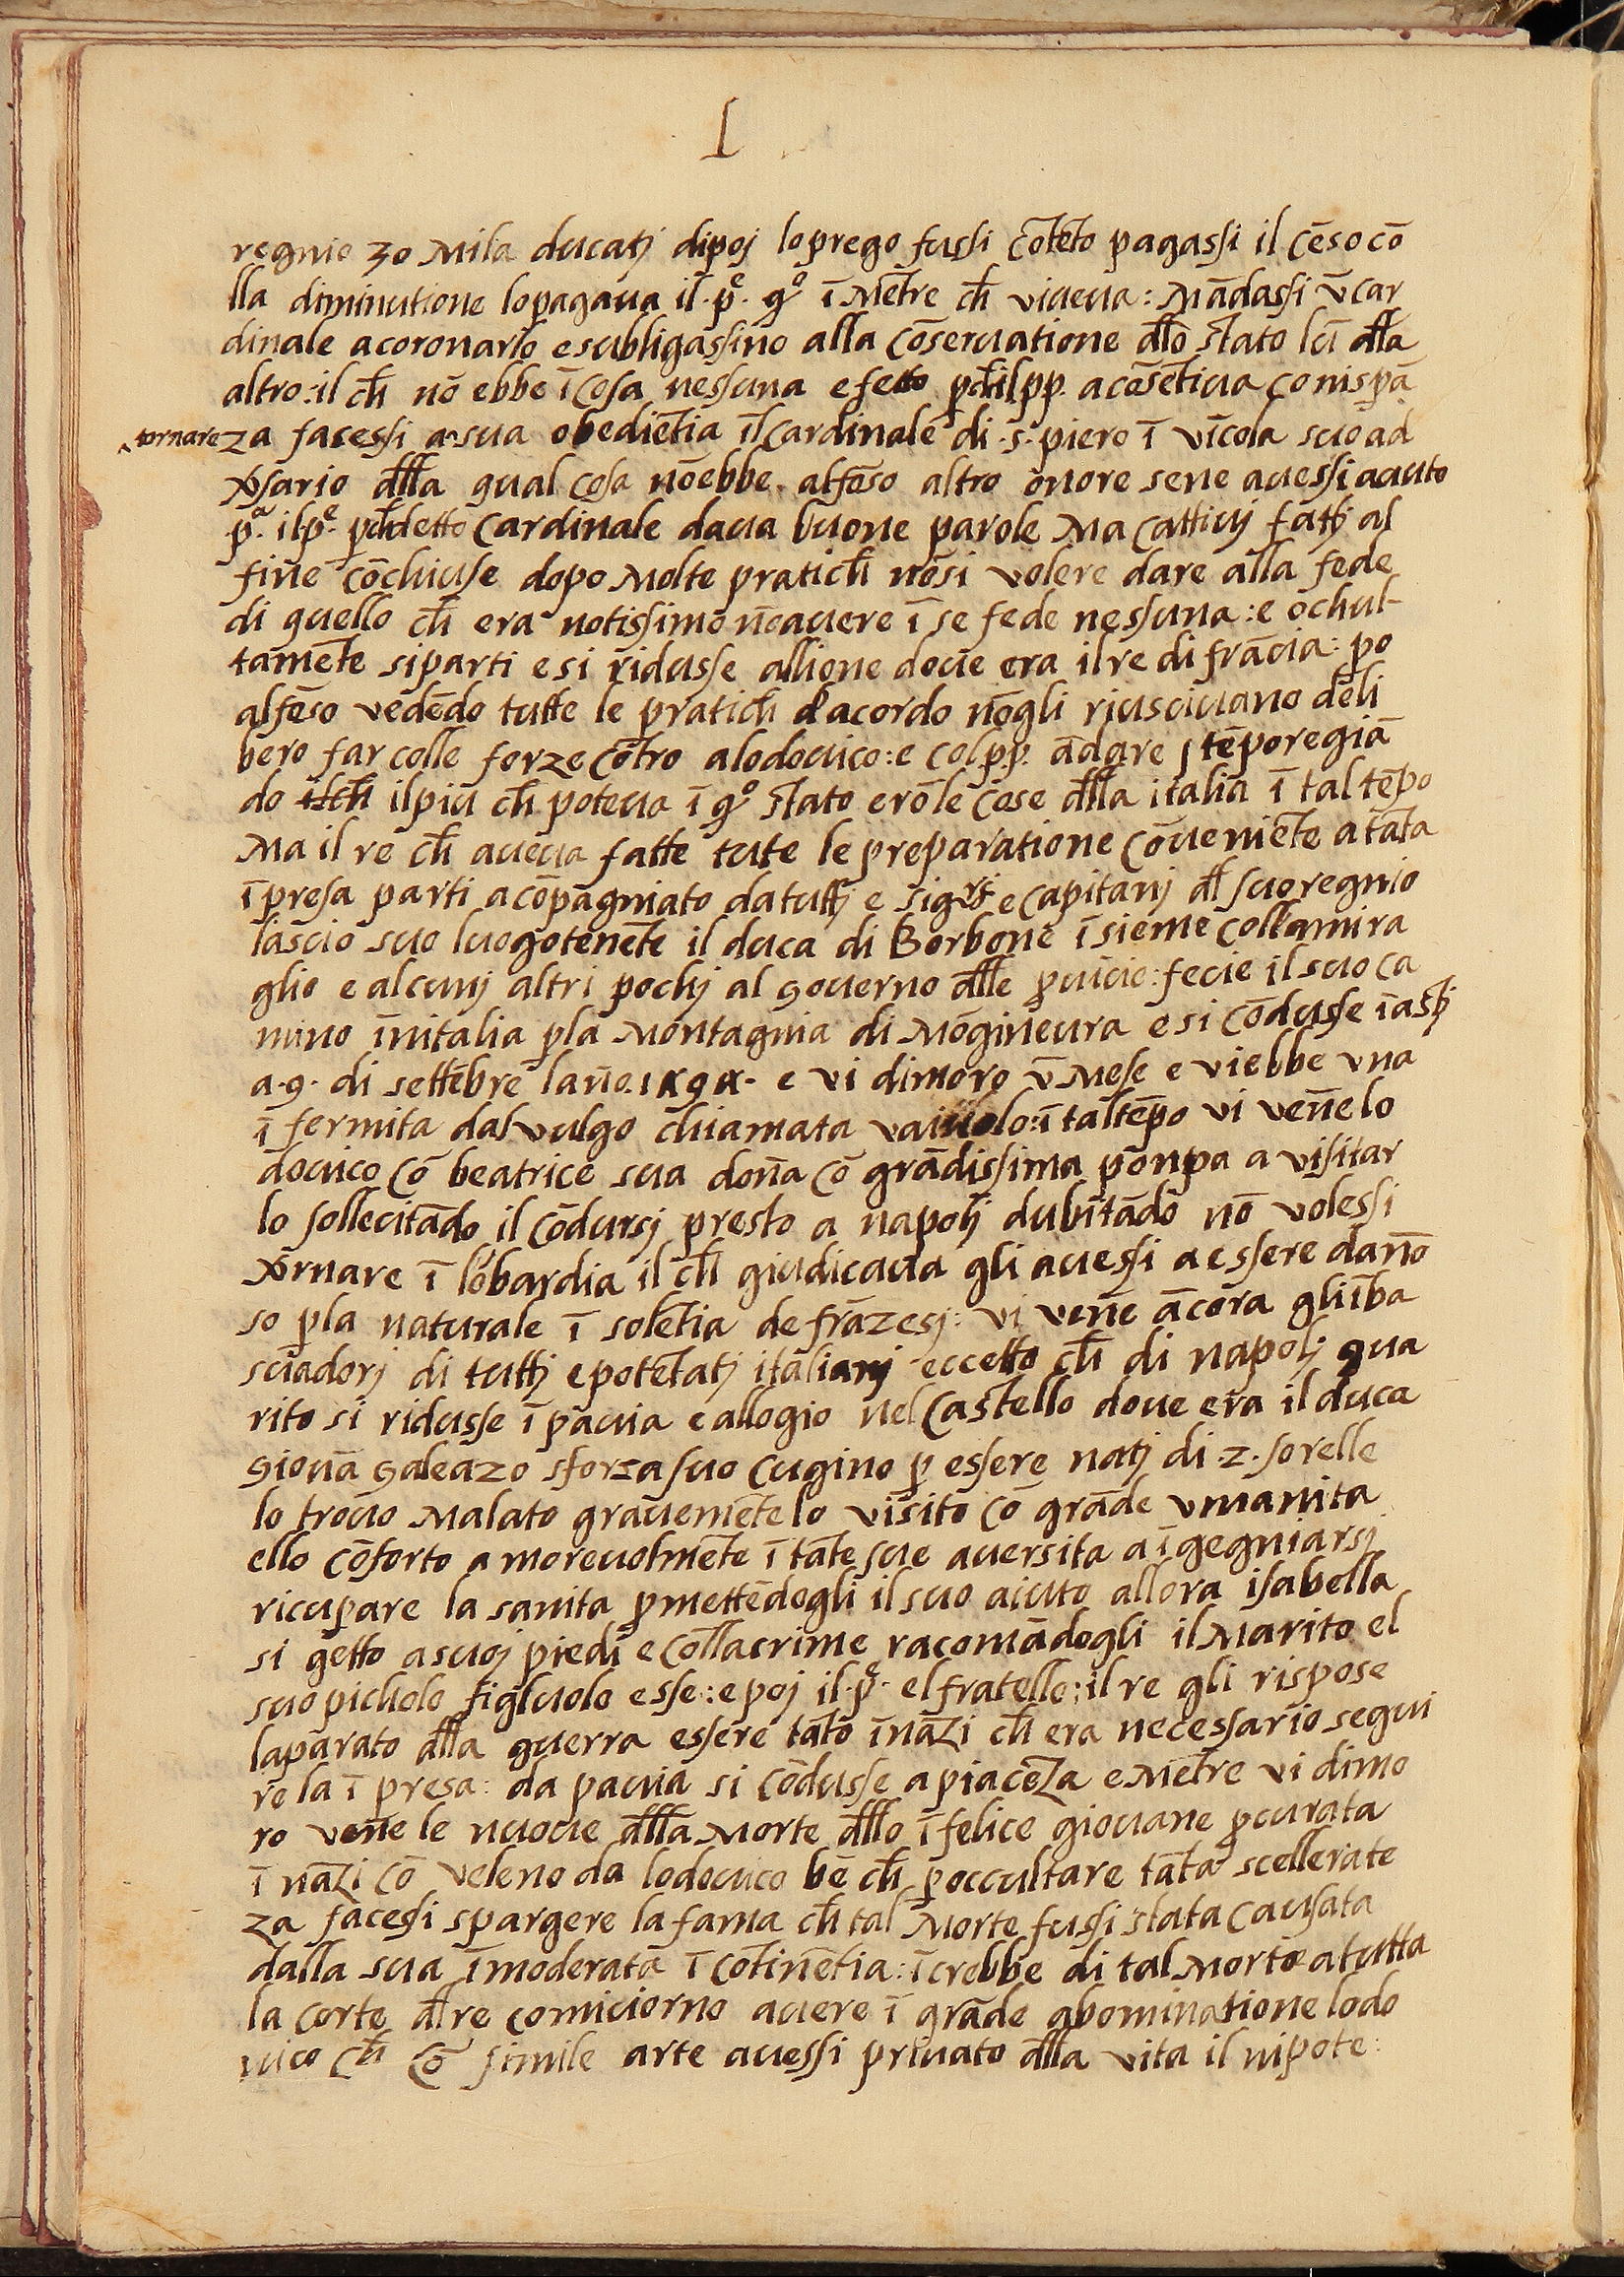 I
regnio 30 Mila ducatj dipoj lo prego fussi cōtēto pagassi il cēso cō
lla diminutione lo pagaua il .pͤ. qͦ ī Mētre ch̄ viueua : Mādassi v̄ car
dinale a coronarlo e subligassino alla cōseruatione dll̄o stato lū dll̄a
altro : il ch̄ nō ebbe ī cosa nessuna efetto pch̄ il pp. acōsētiua con ispā
^tornare za facessi a sua obediētia il cardinale di .s. piero ī vīcola suo ad
xsario dll̄a qual cosa nō ebbe alfōso altro onore se ne auessi auuto
.pᵃ. il pͤ. pch̄ detto cardinale daua buone parole Ma cattiuj fattj al
fine cōchiuse dopo Molte pratich̄ nōsi volere dare alla fede
di quello ch̄ era notissimo nō auere ī se fede nessuna : e ochul-
tamēte si parti e si ridusse allione doue era il re di frācia : po
alfōso vedēdo tutte le pratich̄ dacordo nōgli riusciuano deli
bero far colle forze cōtro a lodouico : e col p.p. ādare ʃ tēporegiā
do il piu ch̄ poteua ī qͦ stato erō le cose dll̄a italia ī tal tēpo
Ma il re ch̄ aueua fatte tute le preparatione cōueniēte a tāta
ī presa parti acōpagniato da tuttj e sigʳj e capitanj dl̄ suo regnio
lascio suo luogotenēte il duca di Borbone īsieme collamira
glio e alcunj altri pochj al gouerno dll̄e puīcie : fecie il suo ca
mino īnitalia pla Montagnia di Mōgineura e si cōdusse ī astj
a .9. di settēbre lan̄o .1494. e vi dimoro v̄ Mese e vi ebbe vna
ī fermita dal vulgo chiamata vaiuolo : ī tal tēpo vi ven̄e lo
douico cō beatrice sua don̄a cō grādissima pōnpa a visitar
lo sollecitādo il cōdursj presto a napolj dubitādo nō volessi
xrnare ī lōbardia il ch̄ giudicaua gli auessi a essere dan̄o
so pla naturale ī solētia de frāzesj : vi ven̄e ācora gli ība
sciadorj di tuttj e potētatj italianj eccetto ch̄ di napolj gua
rito si ridusse ī pauia e allogio nel castello doue era il duca
giouā galeazo sforza suo cugino p essere natj di .2. sorelle
lo trouo Malato grauemēte lo visito cō grāde vmanita
ello cōforto amoreuolmēte ī tāte sue auersita a īgegniarsj
ricuparе la sanita pmettēdogli il suo aiuto allora isabella
si getto a suoj piedi e collacrime racomādogli il Marito el
suo pichulo figluolo e sse : e poj il .pͤ. el fratello : il re gli rispose
laparato dll̄a guerra essere tāto īnāzi ch̄ era necessario segui
re la ī presa : da pauia si cōdusse a piacēza e Mētre vi dimo
ro ven̄e le nuoue dll̄a Morte dll̄o ī felice giouane pcurata
ī nāzi cō veleno da lodouico bē ch̄ p occultare tāta scellerate
za facessi spargere la fama ch̄ tal Morte fussi stata causata
dalla sua īmoderata ī cōtinētia : īcrebbe di tal Morte a tutta
la corte dl̄ re cominciorno auere ī grāde abominatione lodo
uico ch̄ cō simile arte auessi priuato dll̄a vita il nipote :